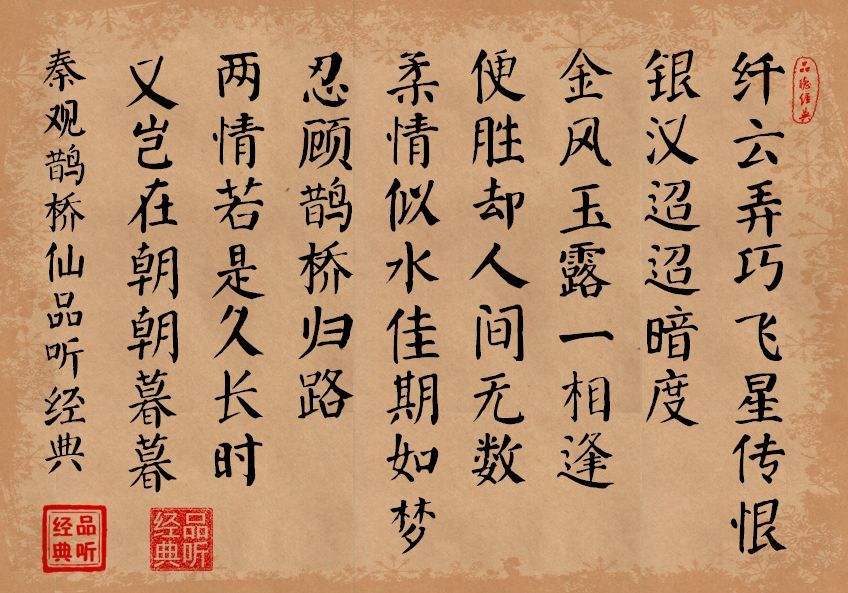 品听经典
纤云弄巧飞星传恨
银汉迢迢暗度
金风玉露一相逢
便胜却人间无数
柔情似水佳期如梦
忍顾鹊桥归路
两情若是久长时
又岂在朝朝暮暮
秦观鹊桥仙品听经典
品听经典
品听经典